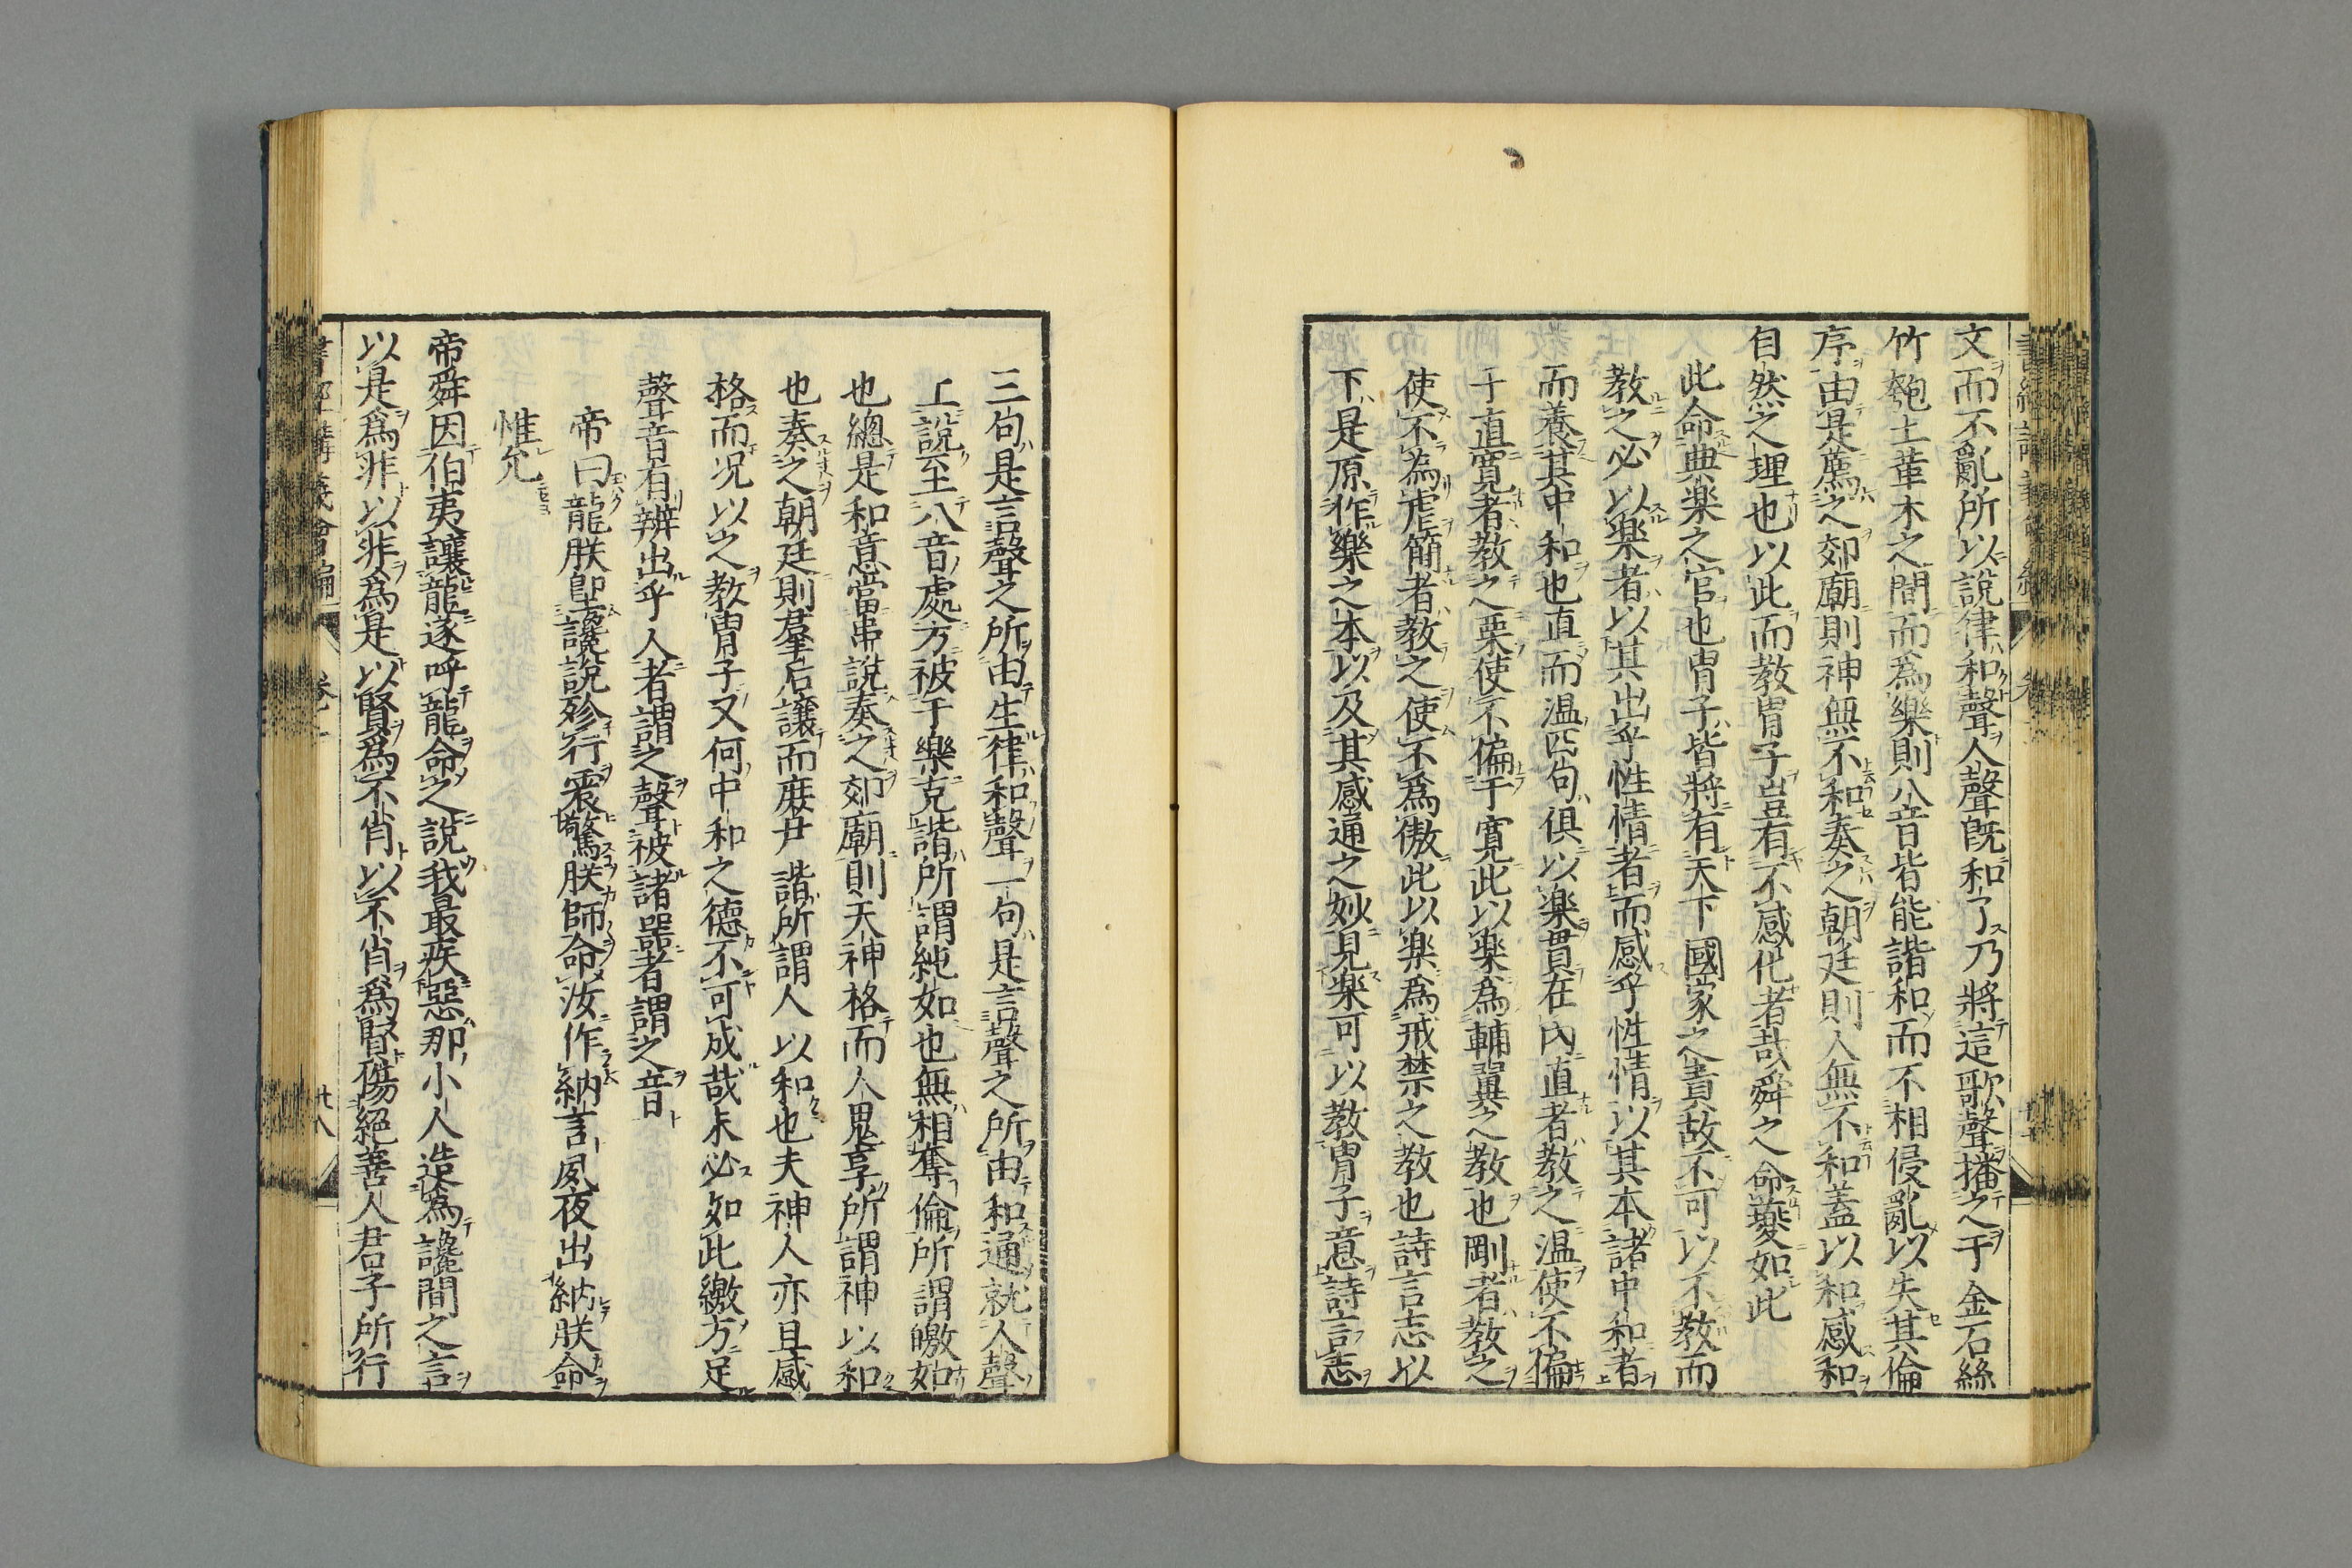 文而不亂所以說律和聲人聲既和了乃將這歌聲播之于金石絲
竹匏土革木之間而爲樂則八音皆能諧和而不相侵亂以失其倫
序由是薦之郊廟則神無不和奏之朝廷則人無不和蓋以和感和
自然之理也以此而教胄子豈有不感化者哉舜之命夔如此
此命典楽之官也胄子皆將有天下國家之責故不可以不教而
教之必以楽者以其出乎性情者而感乎性情以其本諸中和者
而養其中和也直而溫四句俱以楽貫在內直者教之温使不偏
于直寬者教之栗使不偏于寬此以楽爲輔翼之教也剛者教之
使不為虐簡者教之使不爲傲此以楽爲戒禁之教也詩言志以
下是原作樂之本以及其感通之妙見楽可以教胄子意詩言志
三句是言聲之所由生律和聲一句是言聲之所由和通就人聲
上說至八音處方被于樂克諧所謂純如也無相奪倫所謂皦如
也總是和意當串說奏之郊廟則天神格而人鬼享所謂神以和
也奏之朝廷則羣后讓而庶尹諧所謂人以和也夫神人亦且感
格而况以之教胄子又何中和之德不可成哉未必如此繳方足
聲音有辨出乎人者謂之聲被諸器者謂之音
帝曰龍朕堲讒說殄行震驚朕師命汝作納言夙夜出納朕命
惟允
帝舜因伯夷讓龍遂呼龍命之說我最疾惡那小人造爲讒間之言
以是爲非以非爲是以賢爲不肖以不肖爲賢傷絕善人君子所行
書經講義會編
卷一
廿八